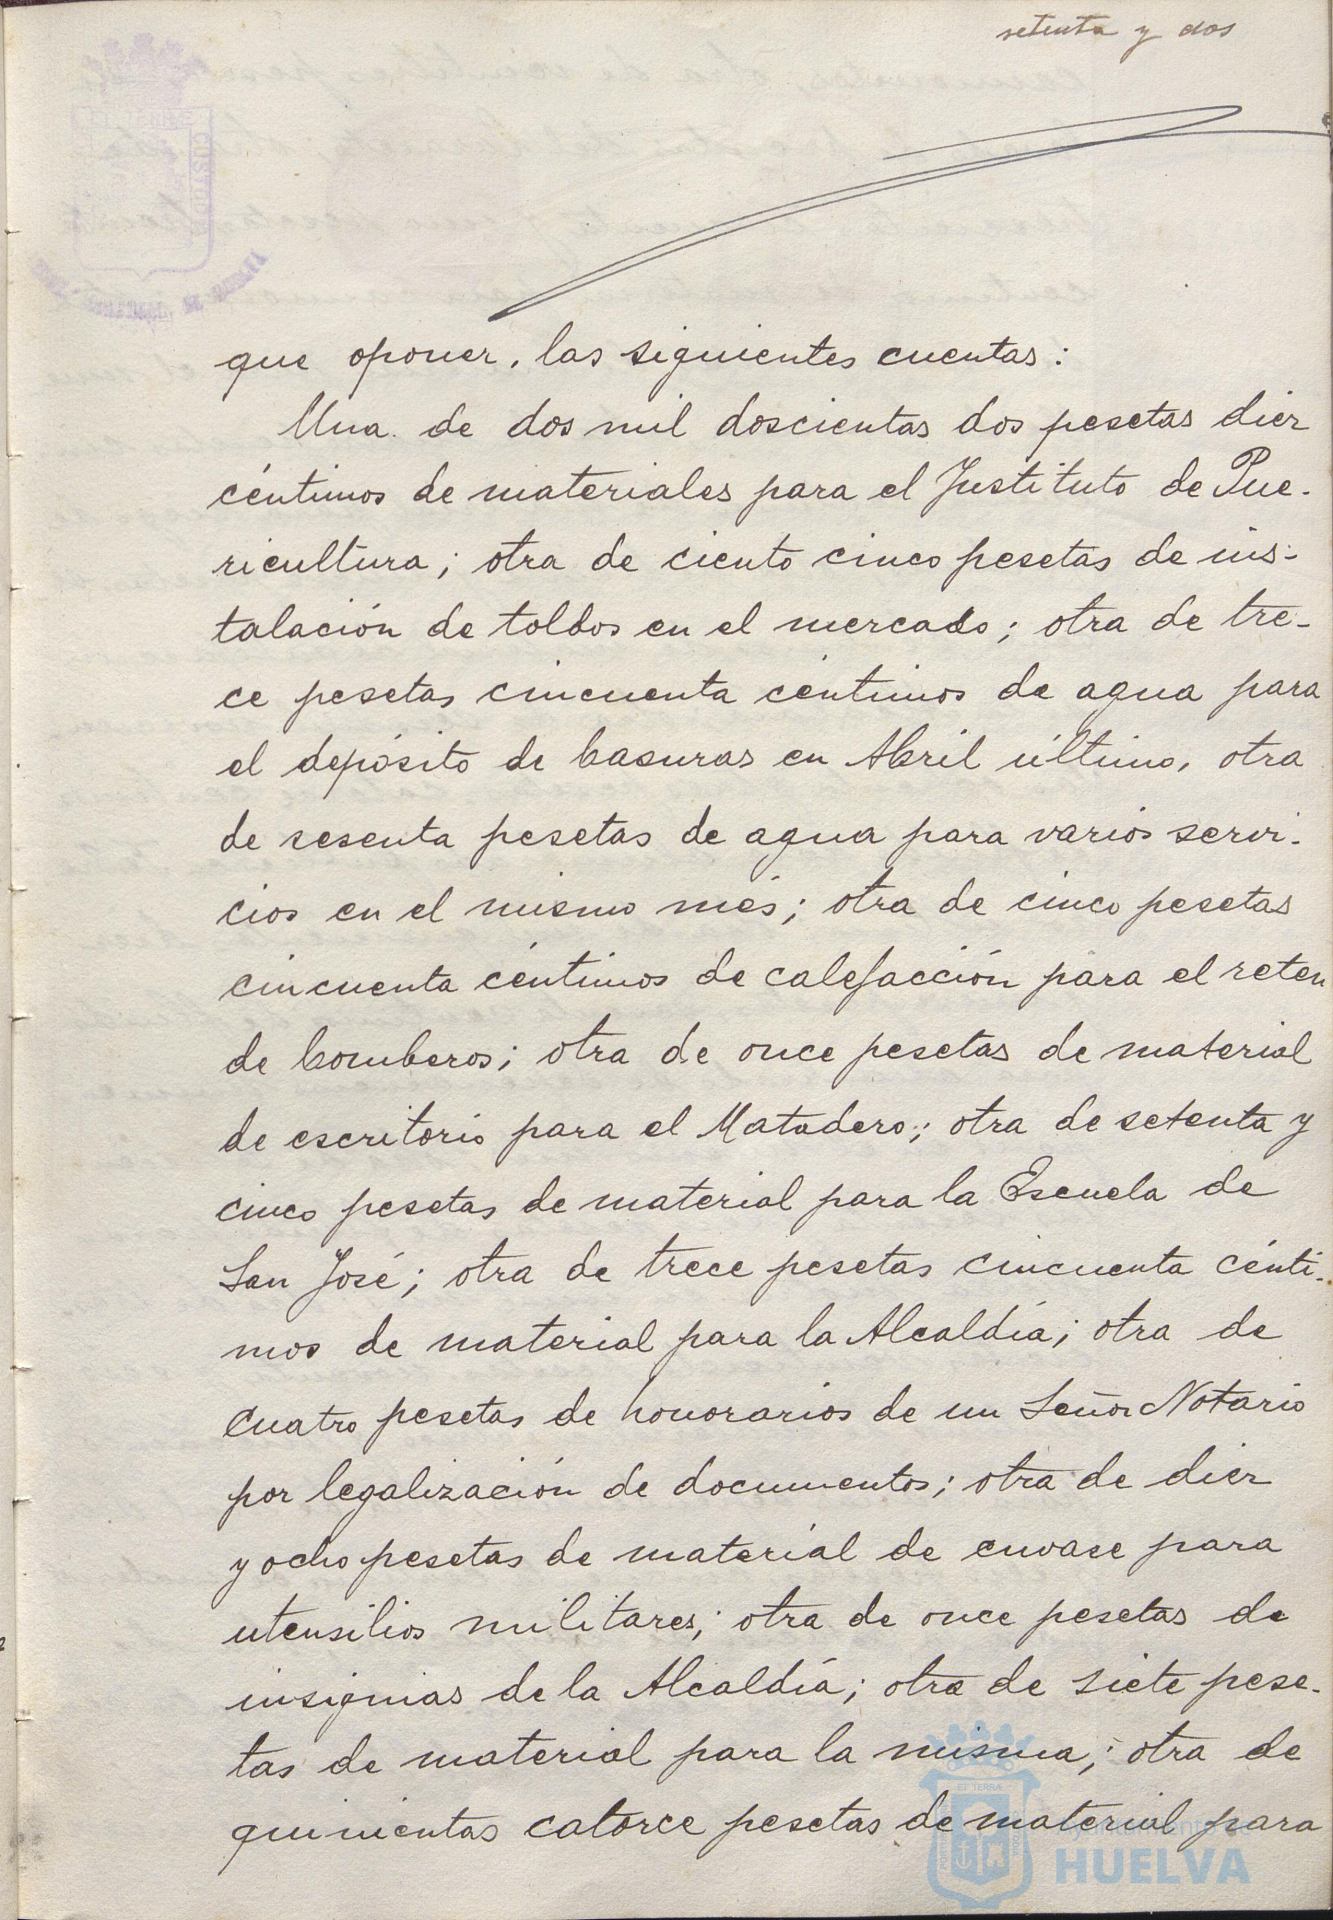 setenta y dos
que oponer, las siguientes cuentas:
Una de dos mil doscientas dos pesetas diez
céntimos de materiales para el Instituto de Pue-
ricultura; otra de ciento cinco pesetas de ins-
talación de toldos en el mercado; otra de tre-
ce pesetas cincuenta céntimos de agua para
el depósito de basuras en Abril último, otra
de sesenta pesetas de agua para varios servi-
cios en el mismo més; otra de cinco pesetas
cincuenta céntimos de calefacción para el reten
de bomberos; otra de once pesetas de material
de escritorio para el Matadero; otra de setenta y
cinco pesetas de material para la Escuela de
San José; otra de trece pesetas cincuenta cénti-
mos de material para la Alcaldía; otra de
cuatro pesetas de honorarios de un Señor Notario
por legalización de documentos; otra de diez
y ocho pesetas de material de envase para
utensilios militares; otra de once pesetas de
insignias de la Alcaldía; otra de siete pese-
tas de material para la misma; otra de
quinientas catorce pesetas de material para
Ayuntamiento de
HUELVA